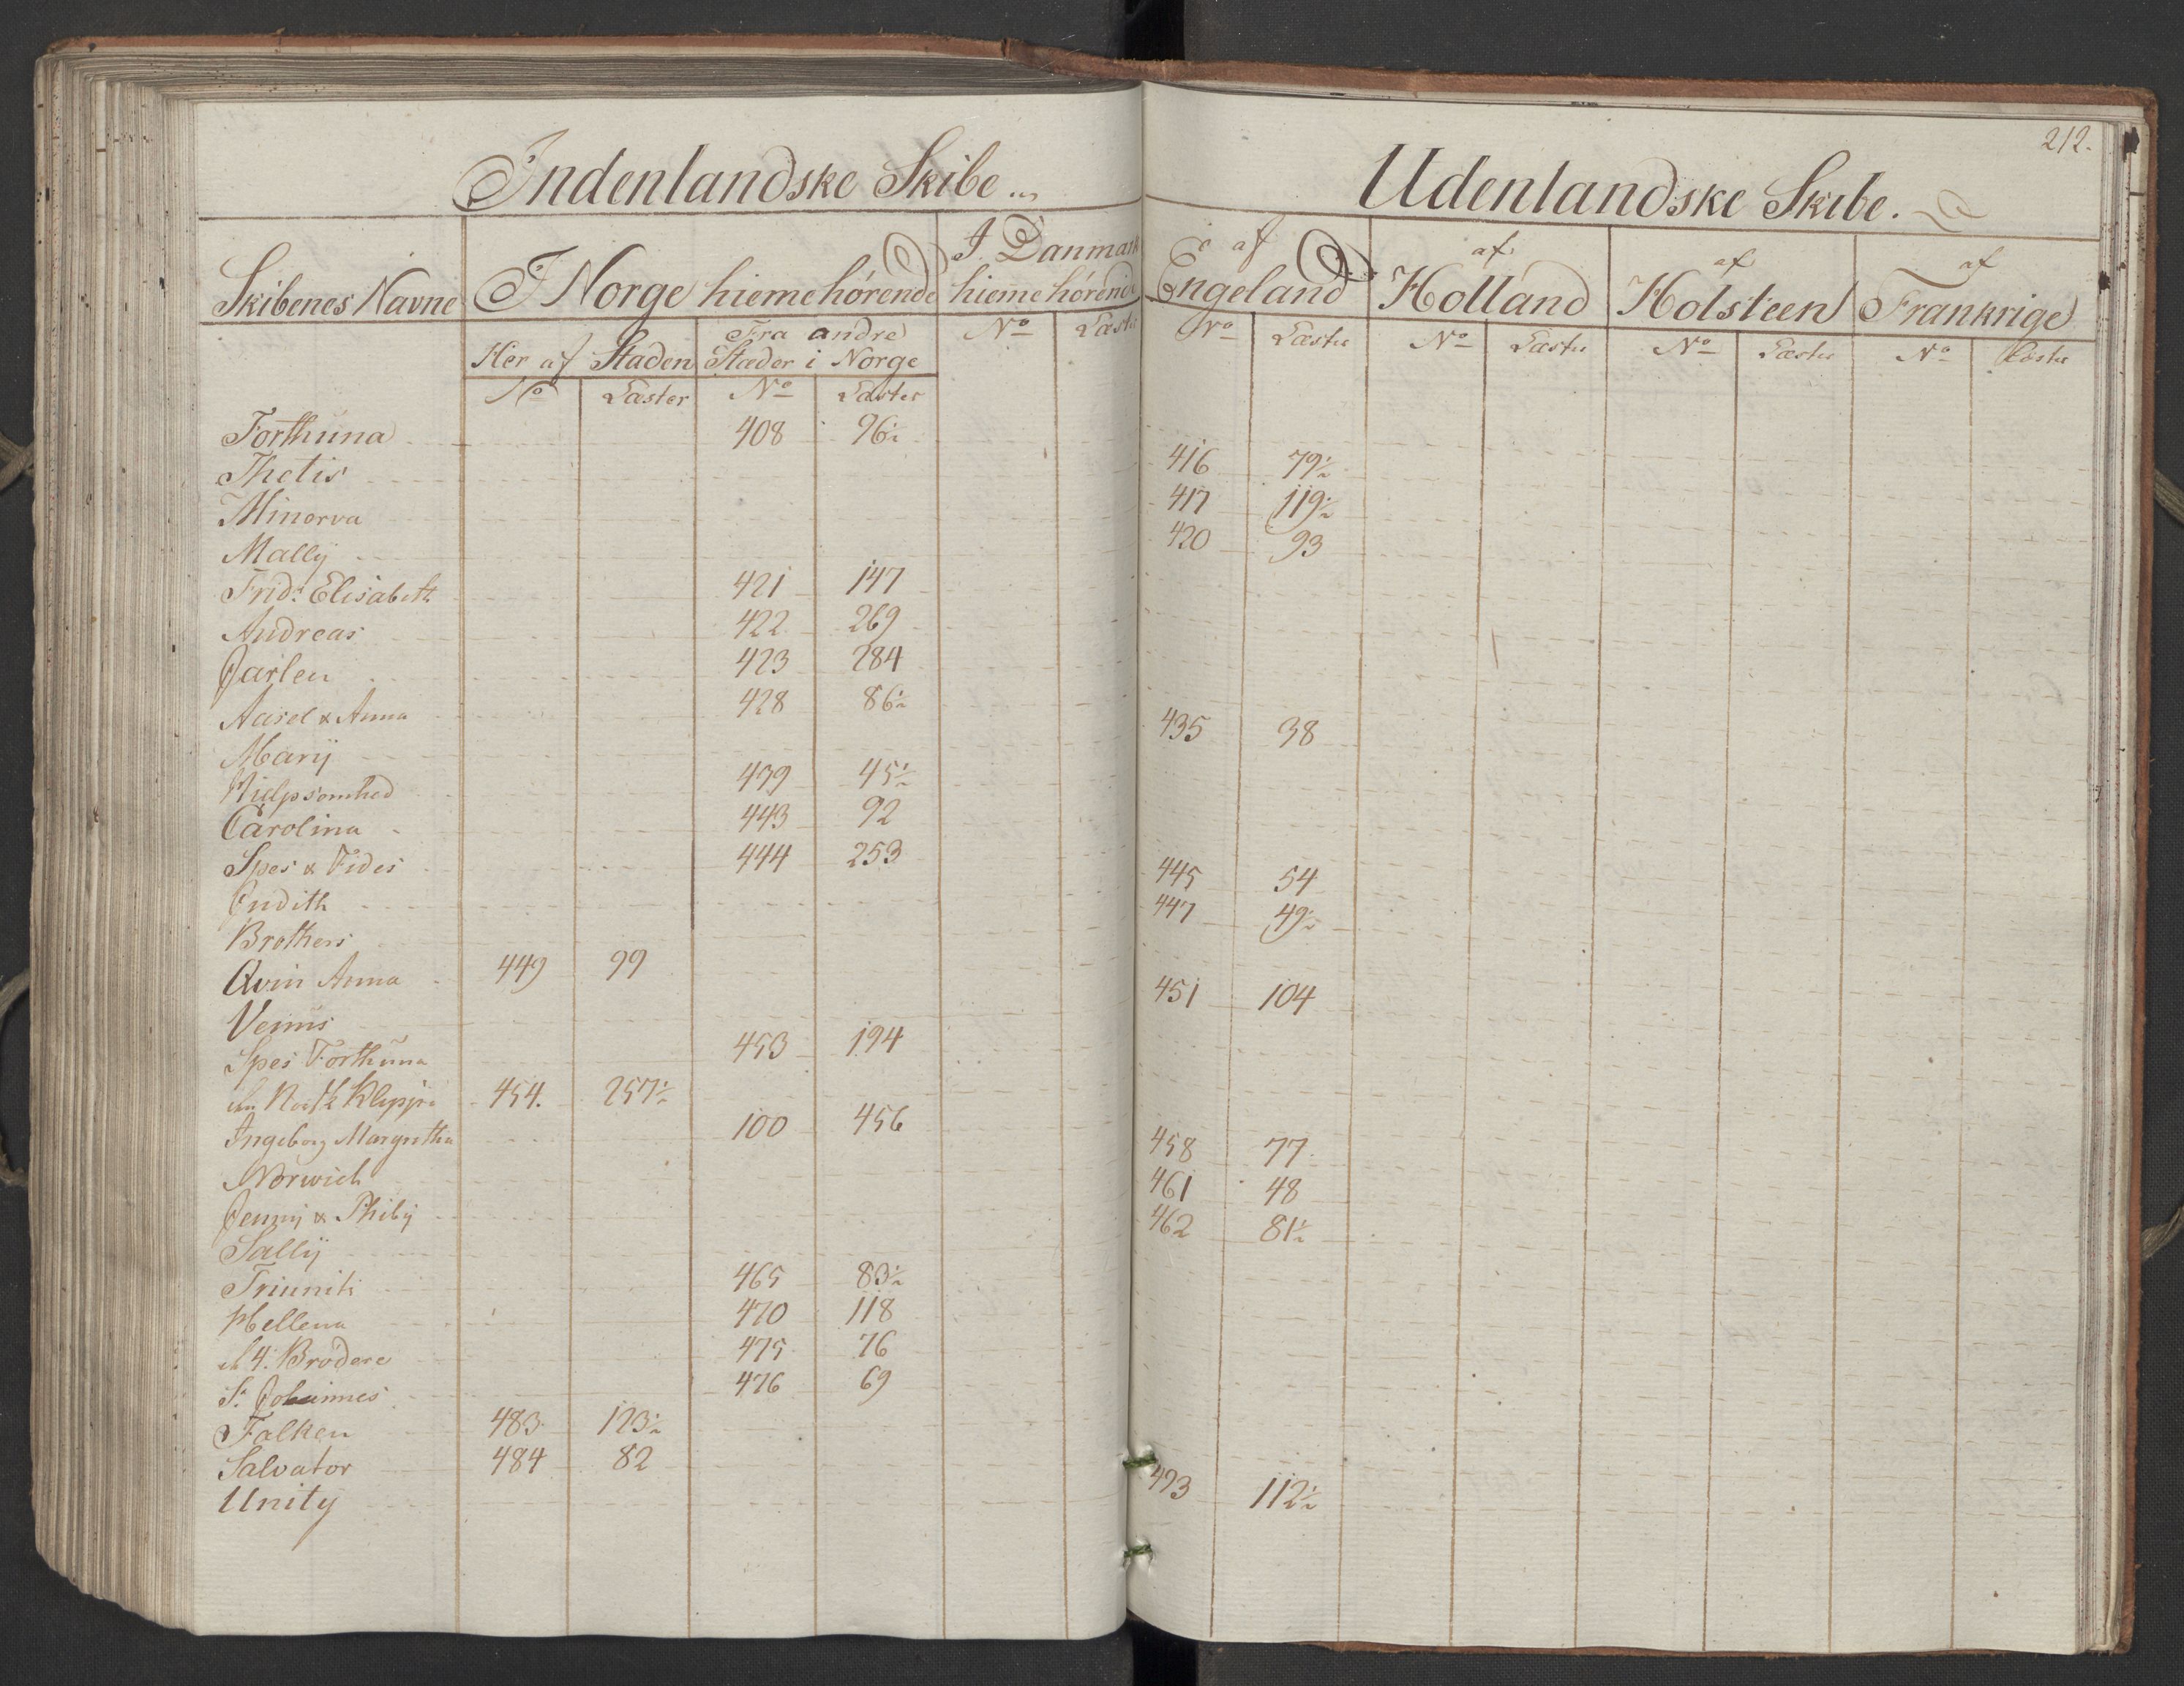 212.
Indenlandske Skibe
Udenlandske Skibe.
Skibenes Navne
I Norge hiemehørende
I Danmark hiemehørende
af Engeland
af Holland
af Holsteen
af Frankrige
Her af Staden
Fra andre Stæder i Norge
No Læster No Læster No Læster No Læster No Læster No Læster No Læster
Forthuna 408 96½
Thetis 416 79½
Minerva 417 119½
Mally 420 93
Frid: Elisabeth 421 147
Andreas 422 269
Jarlen 423 284
Aasel & Anna 428 86½
Mary 435 38
Hielpsomhed 439 45½
Carolina 443 92
Spes & Fides 444 253
Judith 445 54
Brothers 447 49½
Qvin Anna 449 99
Venus 451 104
Spes Forthuna 453 194
454. 257½
Ingeborg Margretha 100 456
Norwich 458 77
Jenny & Phiby 461 48
Sally 462 81½
Triuniti 465 83½
Hellena 470 118
4. Brødere 475 76
St Johannes 476 69
Falken 483 123½
Salvator 484 82
Unity 493 112½